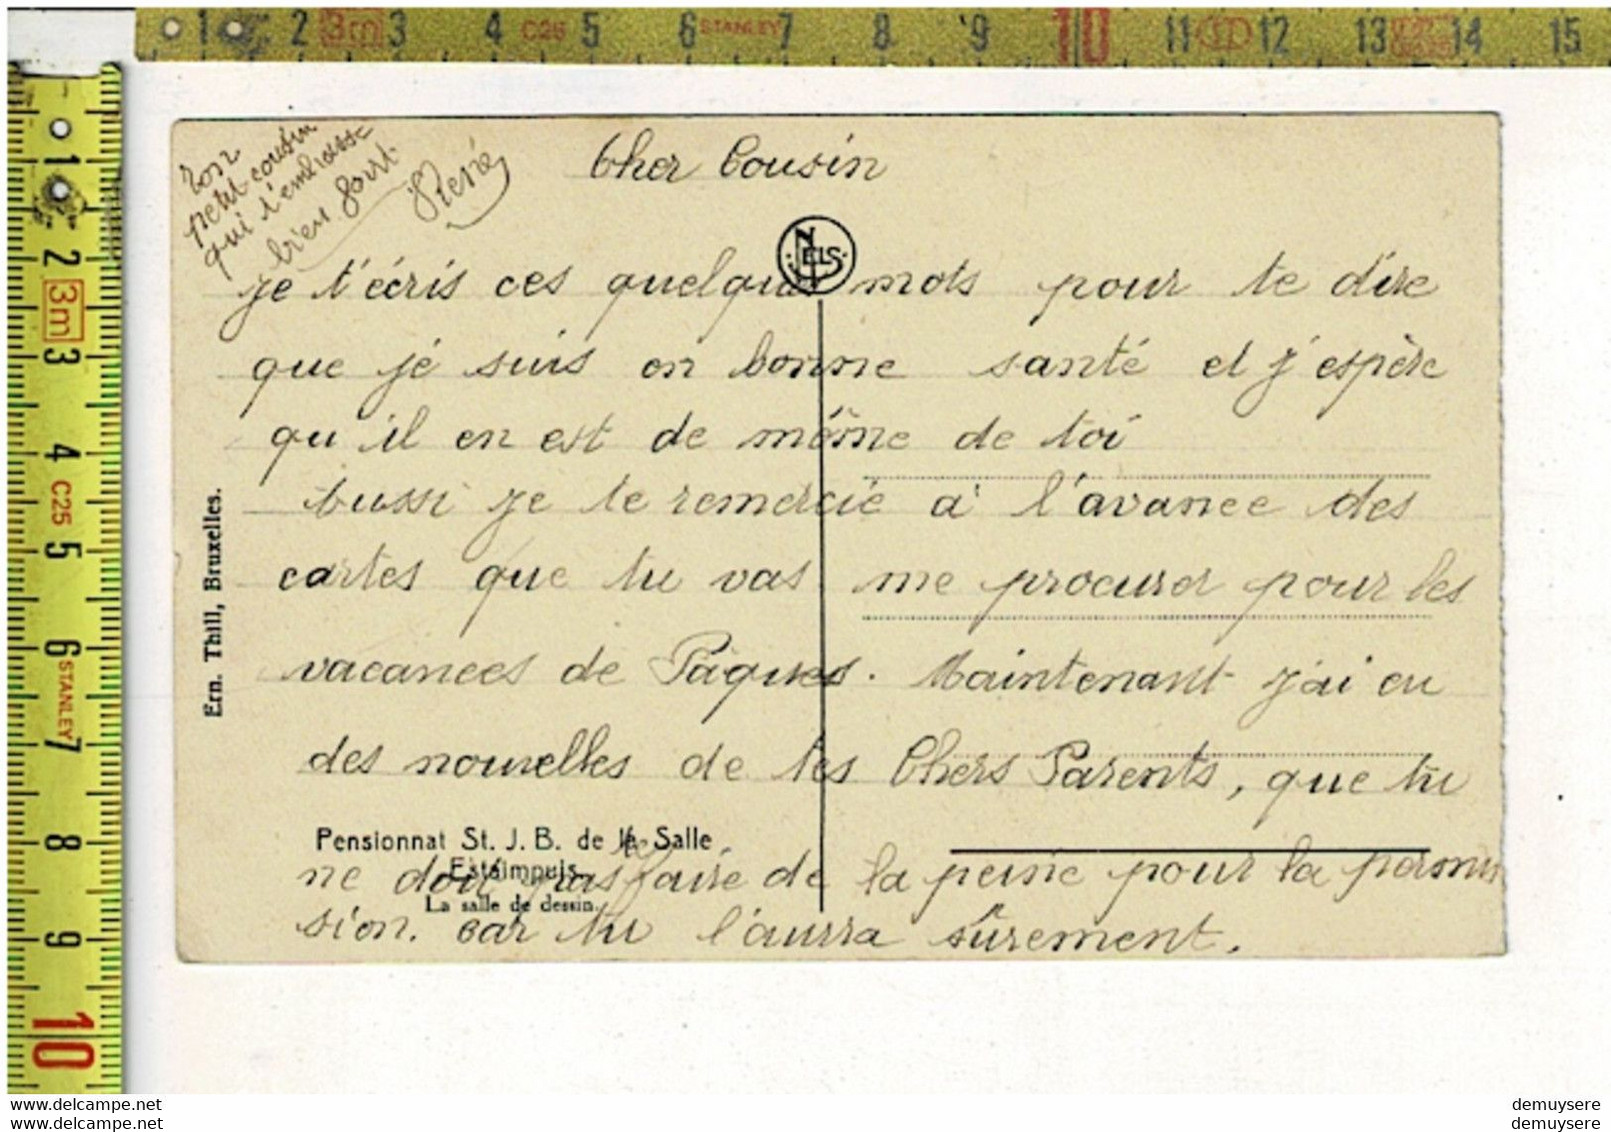 1 2 3m 3 4 C25 5 6 STANLEY 7 8 9 10 11 12 13 14 15
1 2 3m 3 4 C25 5 6 STANLEY 7 8 9 10
ton
petit cousin
qui t'embrasse
bien fort
René
Cher Cousin
NELS
je t'écris ces quelques mots pour te dire
que je suis en bonne santé et j'espère
qu'il en est de même de toi
aussi je te remercie à l'avance des
cartes que tu vas me procurer pour les
vacances de Pâques. Maintenant j'ai eu
des nouvelles de tes Chers Parents, que tu
ne dois pas faire de la peine pour la permis
sion. car tu l'aurra sûrement.
Ern. Thill, Bruxelles.
Pensionnat St. J. B. de la Salle
Estaimpuis.
La salle de dessin.
www.delcampe.net
www.delcampe.net
demuysere
demuysere